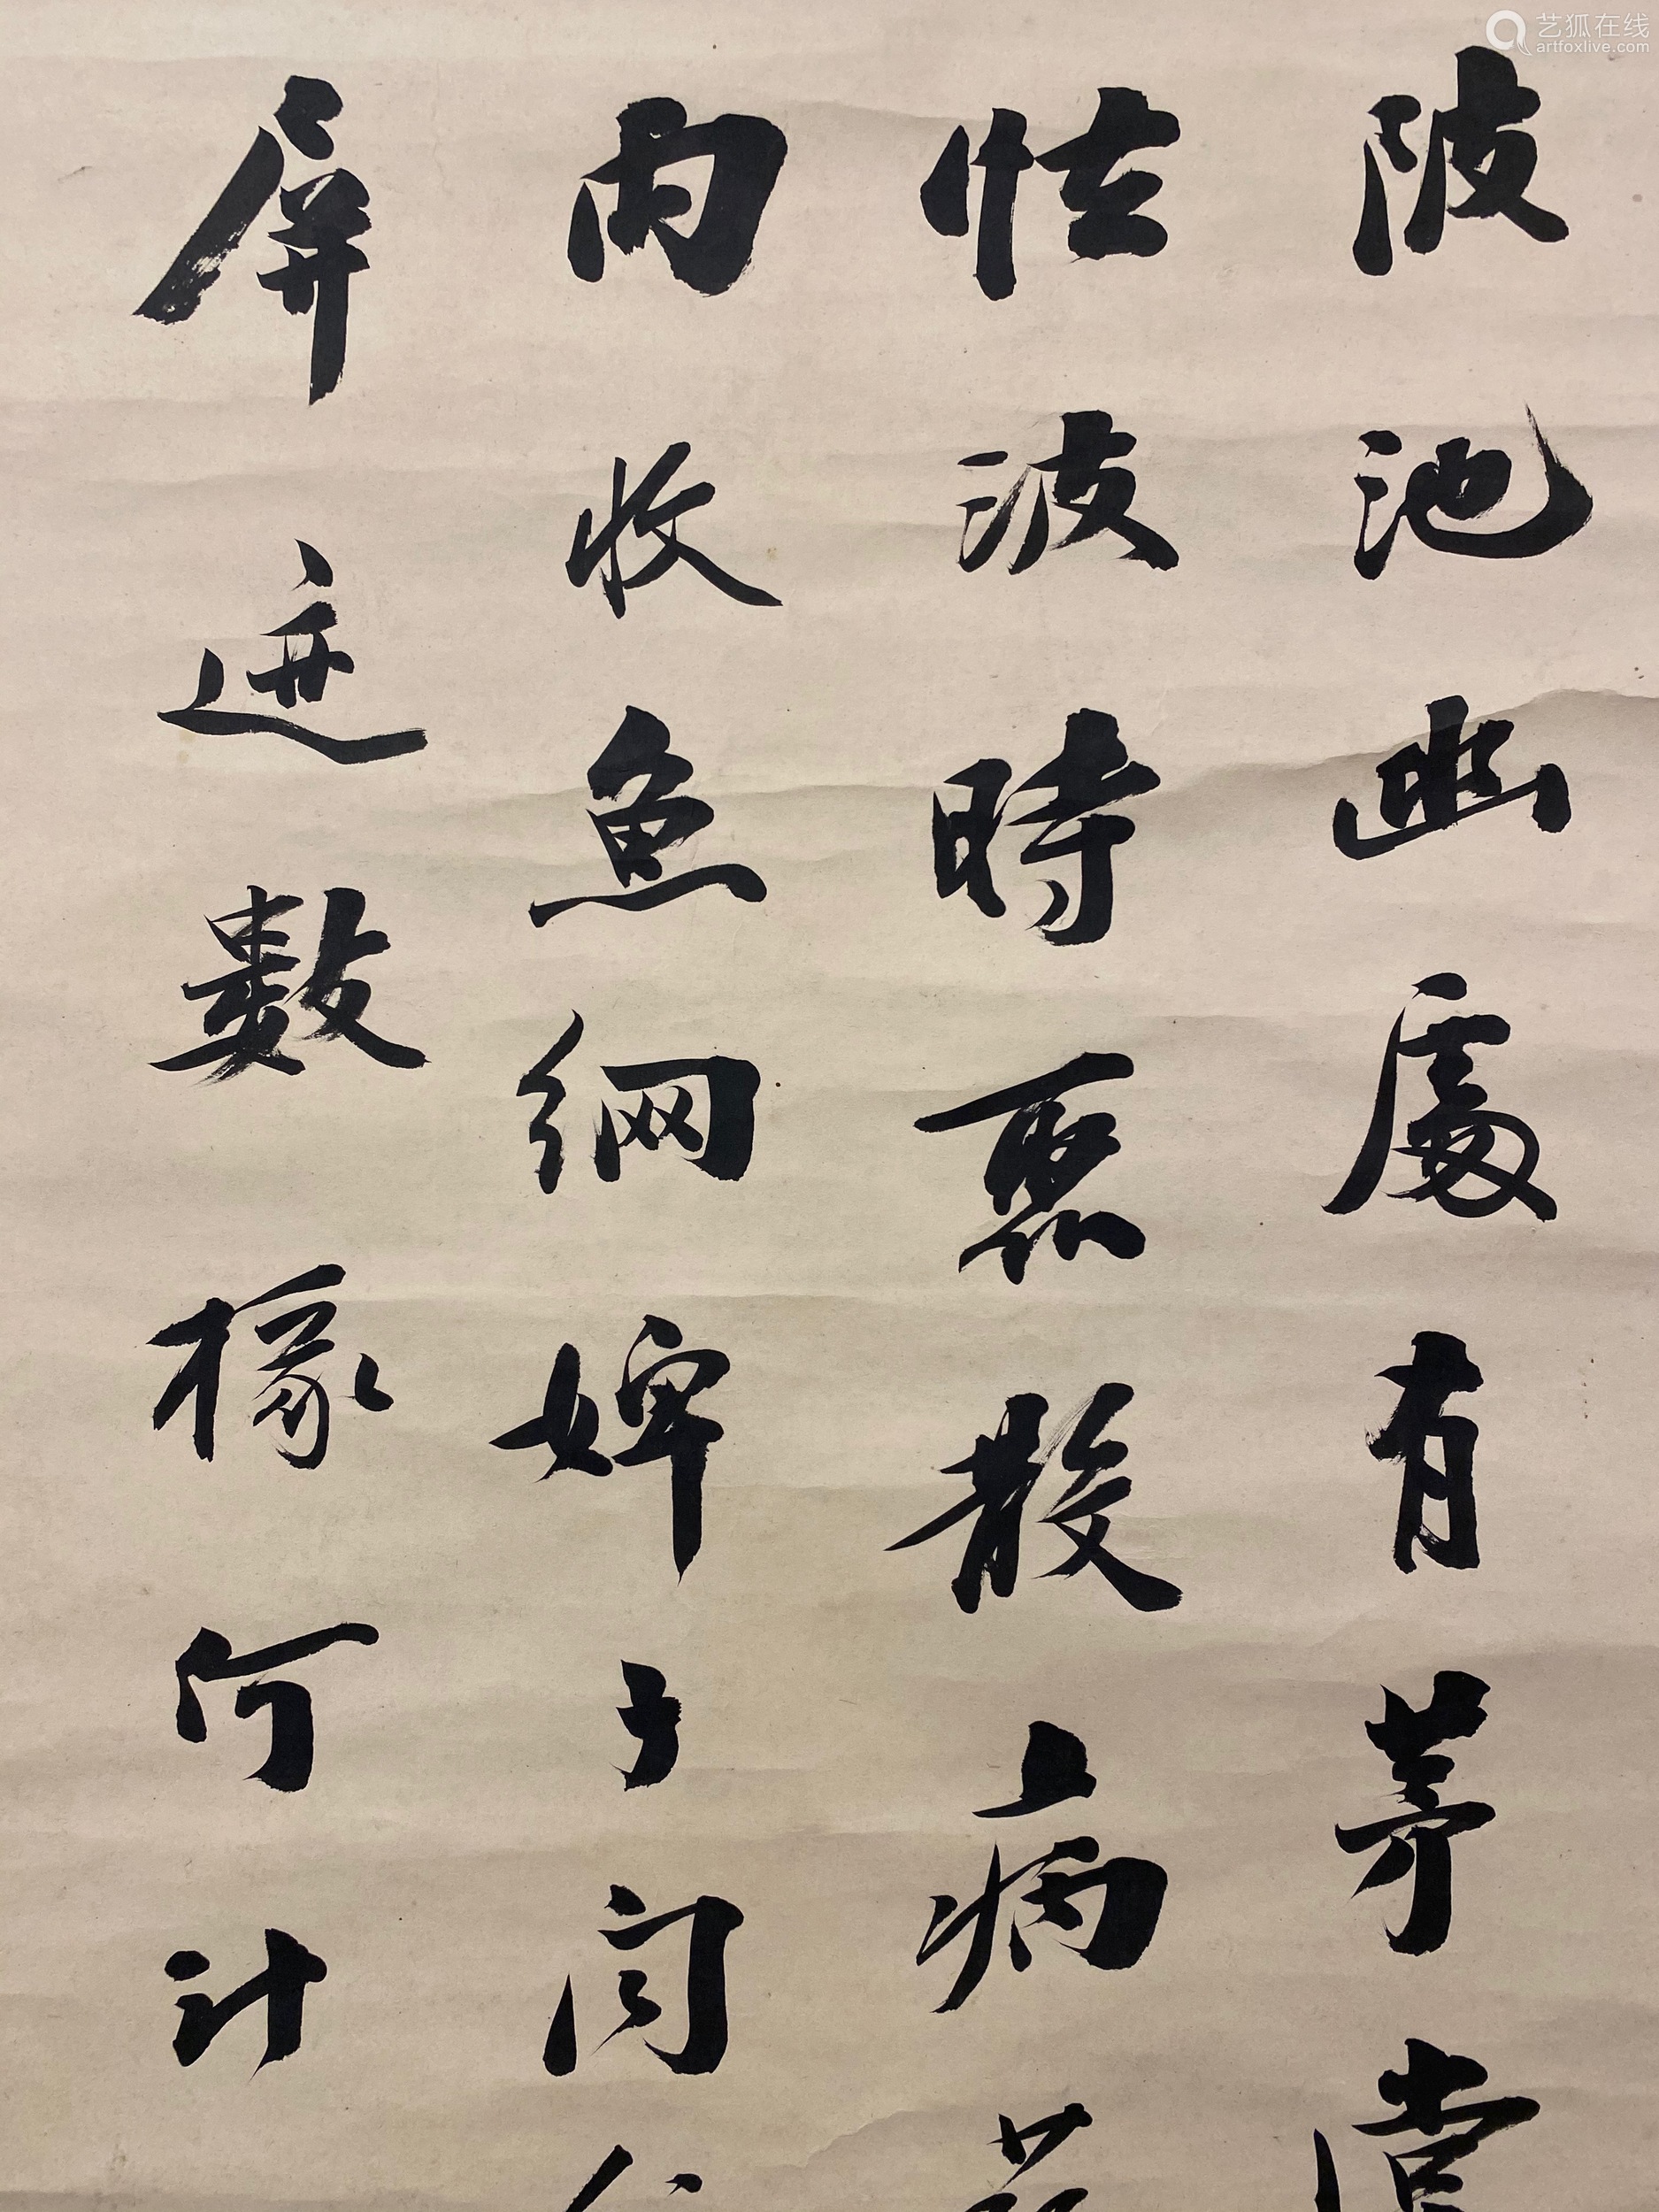 陂池幽處有茅堂
怯波時聚散病
内收魚網婢〻閒
屏迹數椽何計
艺狐在线
artfoxlive.com